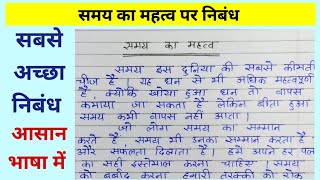 समय का महत्व पर निबंध
सबसे
अच्छा
निबंध
आसान
भाषा में
समय का महत्व
समय इस दुनिया की सबसे कीमती
चीज है । यह धन से भी अधिक महत्वपूर्ण
है, क्योंकि खोया हुआ धन तो वापस
कमाया जा सकता है लेकिन बीता हुआ
समय कभी वापस नहीं आता ।
जो लोग समय का सम्मान
करते हैं समय भी उनका सम्मान करता है
और सफलता दिलाता है । हमें अपने हर पल
का सही इस्तेमाल करना चाहिए । समय
को बर्बाद करना हमारी तरक्की को रोक